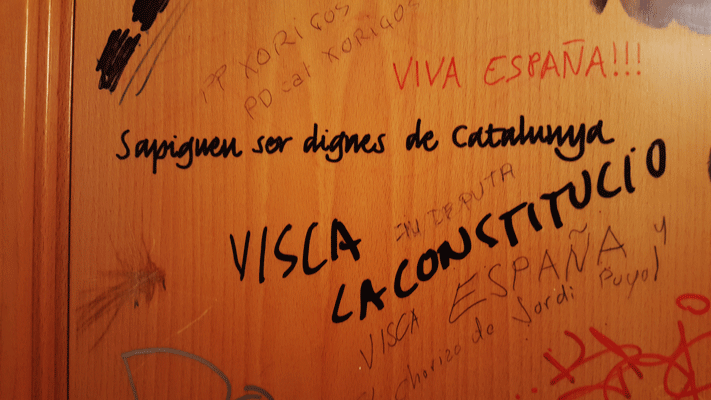 PP XORIGOS
PD cat XORIGOS
VIVA ESPAÑA!!!
Sapiguen ser dignes de Catalunya
VISCA
LA CONSTITUCIÓ
VISCA ESPAÑA y
chorizo de Jordi Puyol